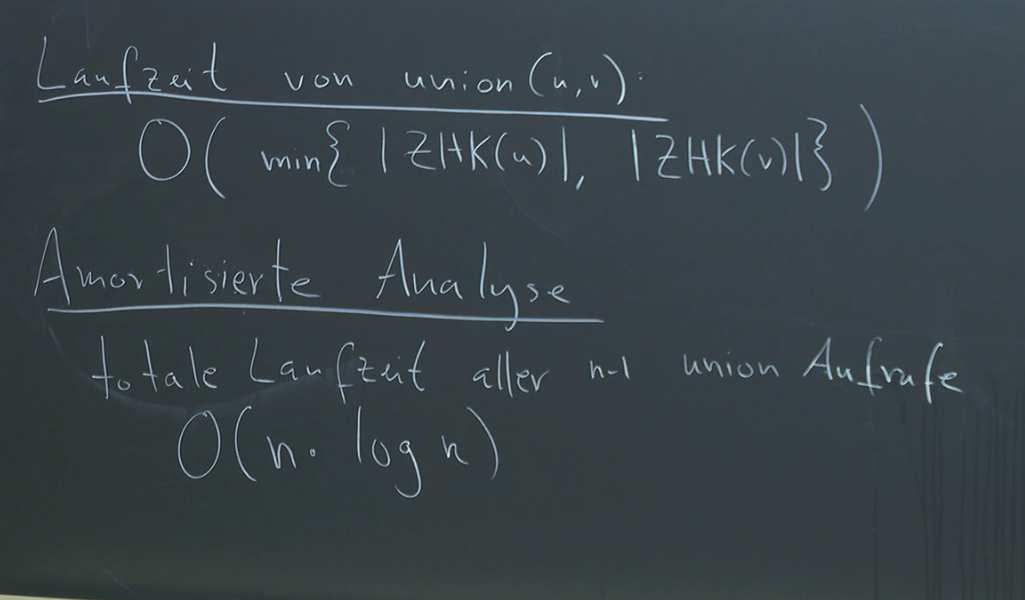 Laufzeit von union(u,v):
O( min{ |ZHK(u)|, |ZHK(v)|} )
Amortisierte Analyse
totale Laufzeit aller n-1 union Aufrufe
O(n· log n)